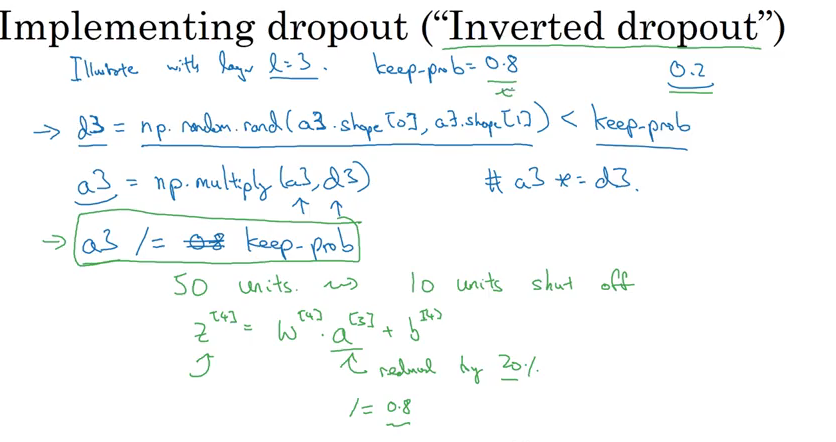 Implementing dropout (“Inverted dropout”)
Illustrate with layer l=3. keep-prob = 0.8 0.2
→ d3 = np.random.rand(a3.shape[0], a3.shape[1]) < keep-prob
a3 = np.multiply(a3, d3) # a3 *= d3.
→ a3 /= 0.8 keep-prob
50 units. ⇝ 10 units shut off
z^[4] = W^[4] · a^[3] + b^[4]
reduced by 20%.
/= 0.8